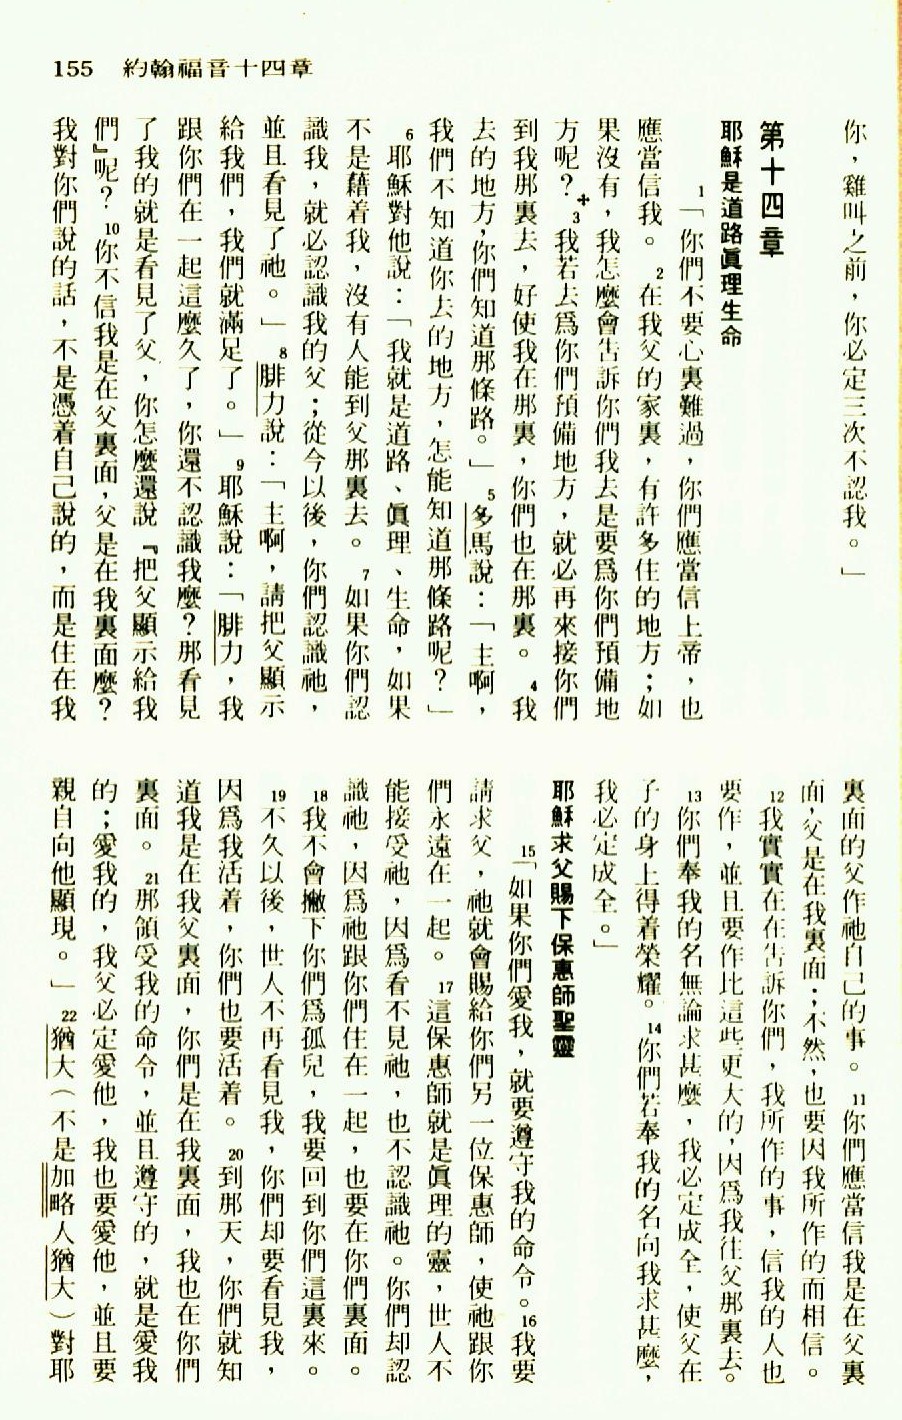 155 約翰福音十四章
你，雞叫之前，你必定三次不認我。」
第十四章
耶穌是道路眞理生命
1「你們不要心裏難過，你們應當信上帝，也
應當信我。2在我父的家裏，有許多住的地方；如
果沒有，我怎麼會告訴你們我去是要爲你們預備地
方呢？+3我若去爲你們預備地方，就必再來接你們
到我那裏去，好使我在那裏，你們也在那裏。4我
去的地方，你們知道那條路。」5多馬說：「主啊，
我們不知道你去的地方，怎能知道那條路呢？」
6耶穌對他說：「我就是道路、眞理、生命，如果
不是藉着我，沒有人能到父那裏去。7如果你們認
識我，就必認識我的父；從今以後，你們認識祂，
並且看見了祂。」8腓力說：「主啊，請把父顯示
給我們，我們就滿足了。」9耶穌說：「腓力，我
跟你們在一起這麼久了，你還不認識我麼？那看見
了我的就是看見了父，你怎麼還說『把父顯示給我
們』呢？10你不信我是在父裏面，父是在我裏面麼？
我對你們說的話，不是憑着自己說的，而是住在我
裏面的父作祂自己的事。11你們應當信我是在父裏
面，父是在我裏面；不然，也要因我所作的而相信。
12我實實在在告訴你們，我所作的事，信我的人也
要作，並且要作比這些更大的，因爲我往父那裏去。
13你們奉我的名無論求甚麼，我必定成全，使父在
子的身上得着榮耀。14你們若奉我的名向我求甚麼，
我必定成全。」
耶穌求父賜下保惠師聖靈
15「如果你們愛我，就要遵守我的命令。16我要
請求父，祂就會賜給你們另一位保惠師，使祂跟你
們永遠在一起。17這保惠師就是眞理的靈，世人不
能接受祂，因爲看不見祂，也不認識祂。你們却認
識祂，因爲祂跟你們住在一起，也要在你們裏面。
18我不會撇下你們爲孤兒，我要回到你們這裏來。
19不久以後，世人不再看見我，你們却要看見我，
因爲我活着，你們也要活着。20到那天，你們就知
道我是在我父裏面，你們是在我裏面，我也在你們
裏面。21那領受我的命令，並且遵守的，就是愛我
的；愛我的，我父必定愛他，我也要愛他，並且要
親自向他顯現。」22猶大（不是加略人猶大）對耶